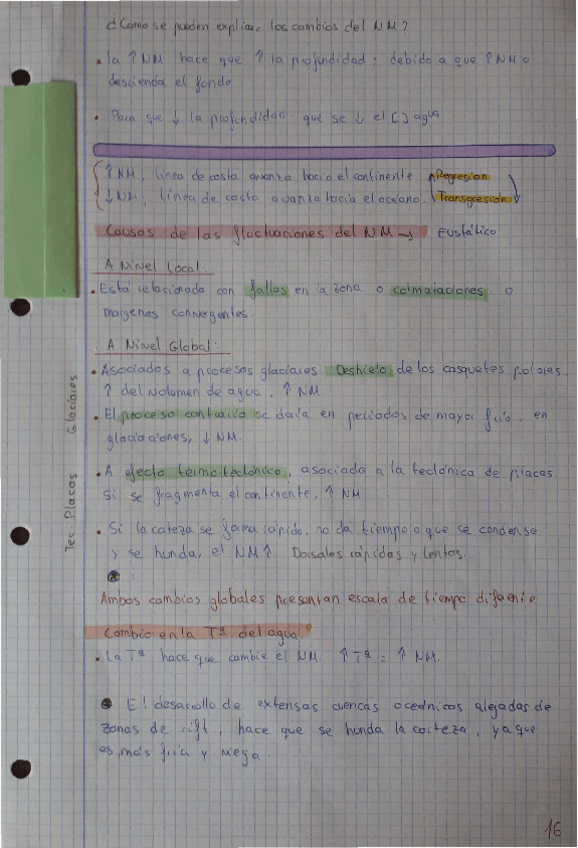 ¿Como se pueden explicar los cambios del NM?
• la ↑NM hace que ↑ la profundidad; debido a que ↑NM o
descienda el fondo
• Para que ↓ la profundidad que se ↓ el [] agua
↑NM; linea de costa avanza hacia el continente Regresion
↓NM; linea de costa avanza hacia el oceano. Transgresión
Causas de las fluctuaciones del NM → Eustático
A Nivel Local
• Está relacionado con fallas en la zona o colmataciones o
margenes convergentes
A Nivel Global:
• Asociados a procesos glaciares Deshielo de los casquetes polares.
↑ del volumen de agua. ↑ NM
• El proceso contrario se daria en periodos de mayor frio. en
glaciaciones, ↓ NM
Glaciares
• A efecto termo-tectónico, asociado a la tectónica de placas
Si se fragmenta el continente, ↑ NM
• Si la corteza se forma rápido, no da tiempo a que se condense
y se hunda, el NM↑ Dorsales rápidas y lentas.
Tec. Placas
Ambos cambios globales presentan escala de tiempo diferente
Cambio en la Tª del agua:
• La Tª hace que cambie el NM ↑Tª = ↑ NM.
• El desarrollo de extensas cuencas oceánicas alejadas de
zonas de rift, hace que se hunda la corteza, ya que
es más fria y
16